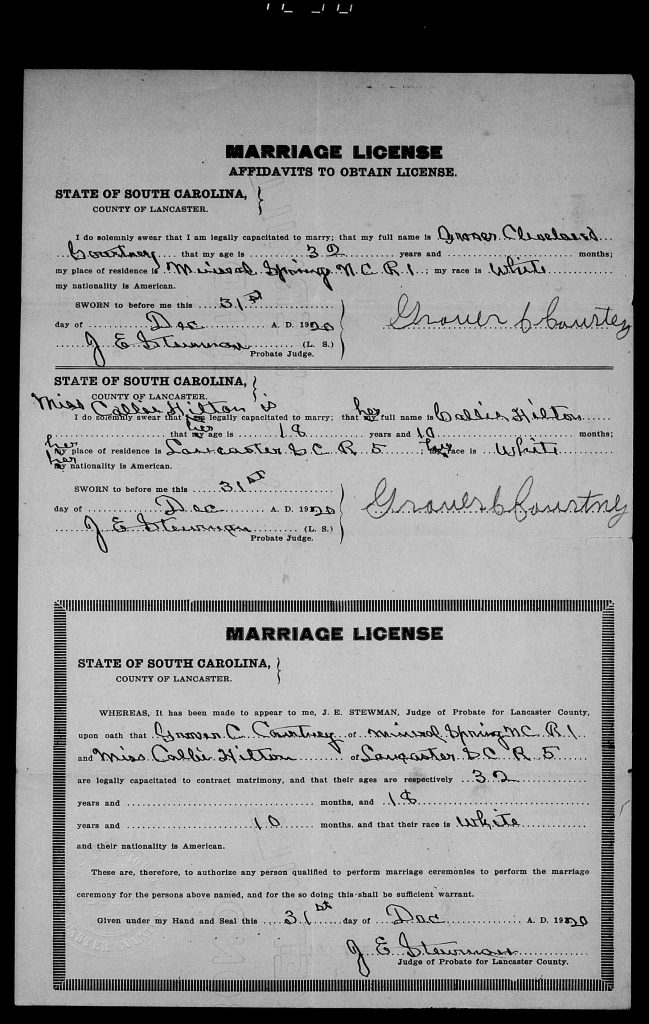 MARRIAGE LICENSE
AFFIDAVITS TO OBTAIN LICENSE.
STATE OF SOUTH CAROLINA,
COUNTY OF LANCASTER.
I do solemnly swear that I am legally capacitated to marry; that my full name is Grover Cleveland
Courtney that my age is 32 years and months;
my place of residence is Mineral Spring N.C. R 1; my race is White
my nationality is American.
SWORN to before me this 31st
day of Dec A. D. 1920
J E Stewman (L. S.)
Probate Judge.
Grover C Courtney
STATE OF SOUTH CAROLINA,
COUNTY OF LANCASTER.
Miss Callie Hilton is
I do solemnly swear that legally capacitated to marry; that her full name is Callie Hilton
that her age is 18 years and 10 months;
her place of residence is Lancaster S C R 5; her race is White
her nationality is American.
SWORN to before me this 31st
day of Dec A. D. 1920
J E Stewman (L. S.)
Probate Judge.
Grover C Courtney
MARRIAGE LICENSE
STATE OF SOUTH CAROLINA,
COUNTY OF LANCASTER.
WHEREAS, It has been made to appear to me, J. E. STEWMAN, Judge of Probate for Lancaster County,
upon oath that Grover C. Courtney of Mineral Spring N C R 1
and Miss Callie Hilton of Lancaster S C R 5
are legally capacitated to contract matrimony, and that their ages are respectively 32
years and months, and 18
years and 10 months, and that their race is White
and their nationality is American.
These are, therefore, to authorize any person qualified to perform marriage ceremonies to perform the marriage
ceremony for the persons above named, and for the so doing this shall be sufficient warrant.
Given under my Hand and Seal this 31st day of Dec A. D. 1920
J E Stewman
Judge of Probate for Lancaster County.